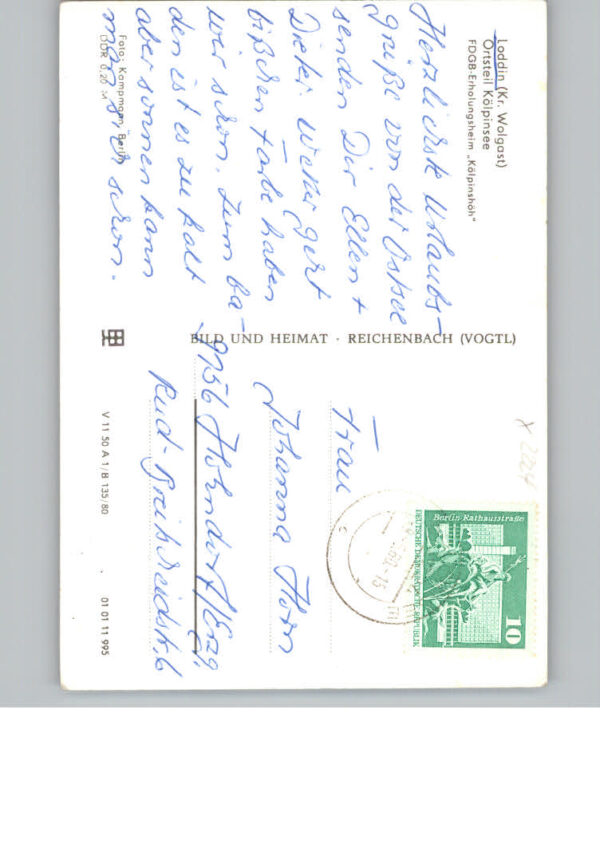 Loddin (Kr. Wolgast)
Ortsteil Kölpinsee
FDGB-Erholungsheim „Kölpinshöh"
Herzlichste Urlaubs-
grüße von der Ostsee
senden Dir Ellen +
Dieter. Weker Gert
bißchen Farbe haben
wir schon. Zum Ba-
den ist es zu kalt
aber sonnen kann
man sich schon.
Foto: Kampmann, Berlin
DDR 0,20 M
BILD UND HEIMAT · REICHENBACH (VOGTL)
X 2224
Berlin-Rathausstraße
DEUTSCHE DEMOKRATISCHE REPUBLIK
10
Frau
Johanna Horn
9156 Hohndorf/Erzg.
Rud-Breitscheidstr. 6
V 11 50 A 1/B 135/80
01 01 11 995